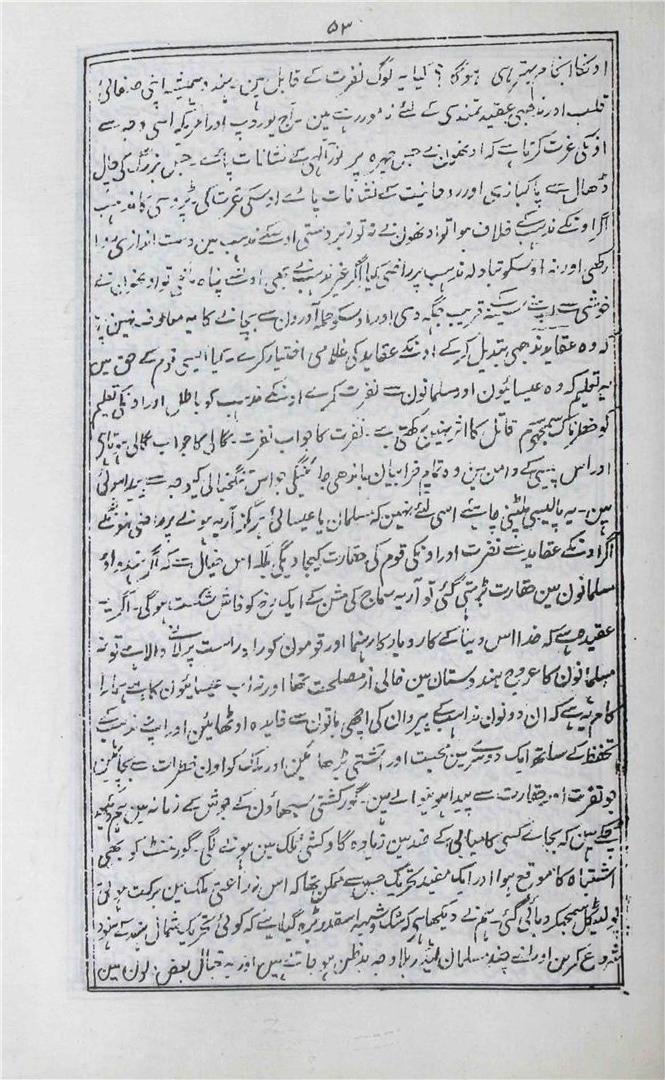 ۵۳
اونکا انجام بہتر ہی ہوگا؟ کیا یہ لوگ نفرت کے قابل ہین۔ ہندو ہمیشہ اپنی صفائی
قلب اور مذہبی عقیدتمندی کے لئے نامور رہے ہین۔ آج یوروپ اور امریکہ اسی وجہ سے
اونکی عزت کرتا ہے کہ اونھون نے جس چہرہ پر نور الٰہی کے نشانات پائے۔ جس بزرگ کی چال
ڈھال سے پاکبازی اور روحانیت کے نشانات پائے اوسکی عزت کی۔ پڑوسی کا مذہب
اگر اونکے مذہب کے خلاف ہوا تو اونھون نے نہ تو زبردستی اوسکے مذہب مین دست اندازی روا
رکھی اور نہ اوسکو تبادلہ مذہب پر راضی کیا اگر غیر مذہب نے بھی اونسے پناہ مانگی تو اونھون نے
خوشی سے اپنے سینے کے قریب جگہ دی اور اوسکو حملہ آورون سے بچانے کا یہ معاوضہ نہین
کہ وہ عقاید مذہبی تبدیل کر کے اونکے عقاید کی غلامی اختیار کرے۔ کیا ایسی قوم کے حق مین
یہ تعلیم کہ وہ عیسائیون اور مسلمانون سے نفرت کرے اونکے مذہب کو باطل اور اونکی تعلیم
کو خطرناک سمجھے سم قاتل کا اثر نہین رکھتی ہے۔ نفرت کا جواب نفرت۔ گالی کا جواب گالی ہوتا ہے
اور اس پالیسی کے دامن مین وہ تمام خرابیان باندھی جائینگی جو اس تنگخیالی کیوجہ سے پیدا ہوئی
ہین۔ یہ پالیسی پلٹنی چاہئے اسی لئے نہین کہ مسلمان یا عیسائی ہرگز آریہ ہونے پر راضی نہونگے
اگر اونکے عقاید سے نفرت اور اونکی قوم کی حقارت کیجاویگی بلکہ اس خیال سے کہ اگر ہندو اور
مسلمانون مین حقارت بڑھتی گئی تو آریہ سماج کی مشن کے ایک رخ کو فاش شکست ہوگی۔ اگر یہ
عقیدہ ہے کہ خدا اس دنیا کے کاروبار کا رہنما اور قومون کو راہ راست پر لانے والا ہے تو نہ
مسلمانون کا عروج ہندوستان مین خالی از مصلحت تھا اور نہ اب عیسائیون کا ہے ہمارا
کام یہ ہے کہ ان دونون مذاہب کے پیروان کی اچھی باتون سے فایدہ اوٹھائین اور اپنے مذہب کے
تحفظ کے ساتھ ایک دوسرے مین محبت اور آشتی بڑھائین اور ملک کو اون خطرات سے بچائین
جو نفرت اور حقارت سے پیدا ہونیوالے ہین۔ گورکشنی سبھاؤن کے جوش کے زمانہ مین ہم دیکھ
چکے ہین کہ بجائے کسی کامیابی کے ضد مین زیادہ گاوکشی ملک مین ہونے لگی۔ گورنمنٹ کو بھی
اشتباہ کا موقع ہوا اور ایک مفید تحریک جس سے ممکن تھا کہ اس زراعتی ملک مین برکت ہوتی
پولٹیکل سمجھکر دبائی گئی۔ ہم نے دیکھا ہے کہ شک و شبہہ اسقدر بڑھ گیا ہے کہ کوئی تحریک شمالی ہند کے ہندو
شروع کرین اوسنے چند مسلمان لیڈر بلاوجہ بدظن ہو جاتے ہین اور یہ خیال بعض دلون مین